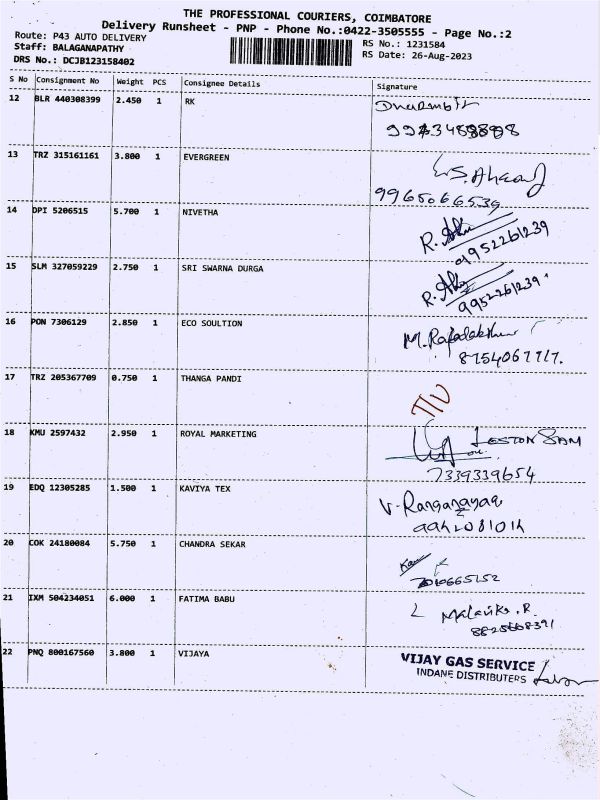 THE PROFESSIONAL COURIERS, COIMBATORE
Delivery Runsheet - PNP - Phone No.:0422-3505555 - Page No.:2
Route: P43 AUTO DELIVERY
Staff: BALAGANAPATHY
RS No.: 1231584
DRS No.: DCJB123158402
RS Date: 26-Aug-2023
S No Consignment No Weight PCS Consignee Details Signature
12 BLR 440308399 2.450 1 RK
13 TRZ 315161161 3.800 1 EVERGREEN
9965066539
14 DPI 5206515 5.700 1 NIVETHA
9952261239
15 SLM 327059229 2.750 1 SRI SWARNA DURGA
9952261239
16 PON 7306129 2.850 1 ECO SOULTION
17 TRZ 205367709 0.750 1 THANGA PANDI
18 KMU 2597432 2.950 1 ROYAL MARKETING
LESTON SAM
7339339654
19 EDQ 12305285 1.500 1 KAVIYA TEX
20 COK 24180084 5.750 1 CHANDRA SEKAR
21 IXM 504234051 6.000 1 FATIMA BABU
22 PNQ 800167560 3.800 1 VIJAYA
VIJAY GAS SERVICE
INDANE DISTRIBUTERS